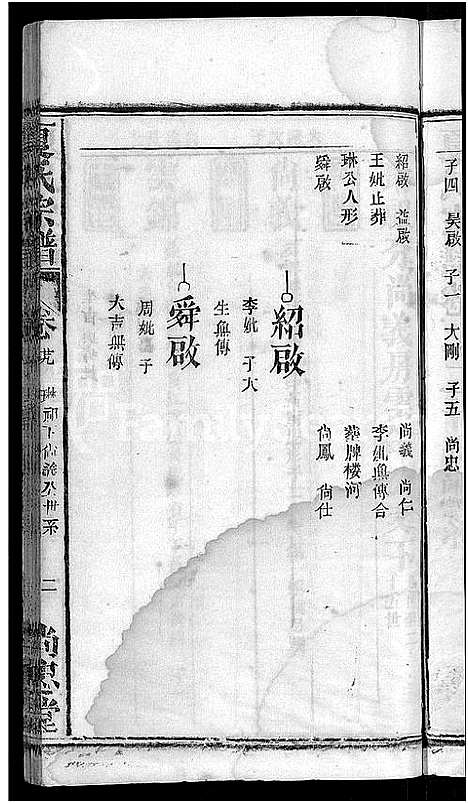 子四 昊啟 子一 大剛 子五 尚忠
紹啟 益啟 尚義 尚仁
王妣止葬 李妣無傳合
琳公人形 葬牌楼河
舜啟 尚鳳 尚仕
紹啟
李妣 子大
生無傳
舜啟
周妣 子
大吉無傳
夏氏宗譜 卷廿 二 尚忠堂